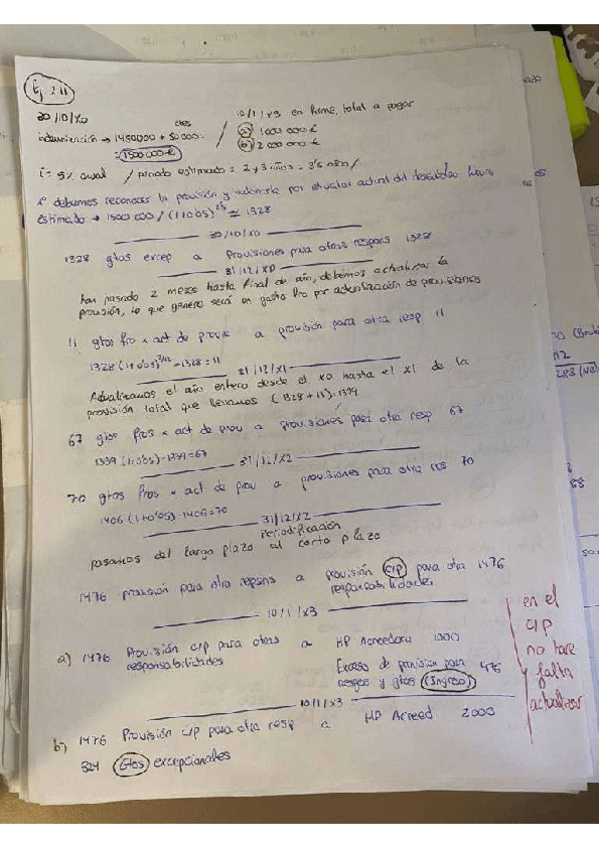 Ej 2.11
30/10/X0
10/1/X3 en firme, total a pagar
indemnización → 1450000 + 50000 =
ctes
= 1500 000 €
a) 1000 000 €
b) 2 000 000 €
i = 5% anual / periodo estimado = 2 y 3 años = 2'5 años /
1º debemos reconocer la provisión y valorarla por el valor actual del desembolso futuro
estimado → 1500 000 / (1+0'05)^2'5 = 1328
30/10/X0
1328 gtos excep a Provisiones para otras respons 1328
31/12/X0
han pasado 2 meses hasta final de año, debemos actualizar la
provisión, lo que genere será un gasto fro por actualización de provisiones
11 gtos fro x act de prov a provisión para otra resp 11
1328 (1+0'05)^2/12 - 1328 = 11
31/12/X1
Actualizamos el año entero desde el X0 hasta el X1 de la
provisión total que llevamos (1328 + 11) = 1339
67 gtos fros x act de prov a provisiones para otra resp 67
1339 (1+0'05) - 1339 = 67
31/12/X2
70 gtos fros x act de prov a provisiones para otra res 70
1406 (1+0'05) - 1406 = 70
31/12/X2
Periodificación
pasamos del largo plazo al corto plazo
1476 provisión para otra repons a provisión C/P para otra 1476
responsabilidades
10/1/X3
a) 1476 Provisión c/p para otras a HP Acreedora 1000
responsabilidades Exceso de provisión para 476
riesgos y gtos (Ingreso)
10/1/X3
b) 1476 Provisión c/p para otra resp a HP Acreed 2000
524 Gtos excepcionales
en el
C/P
no hace
falta
actualizar